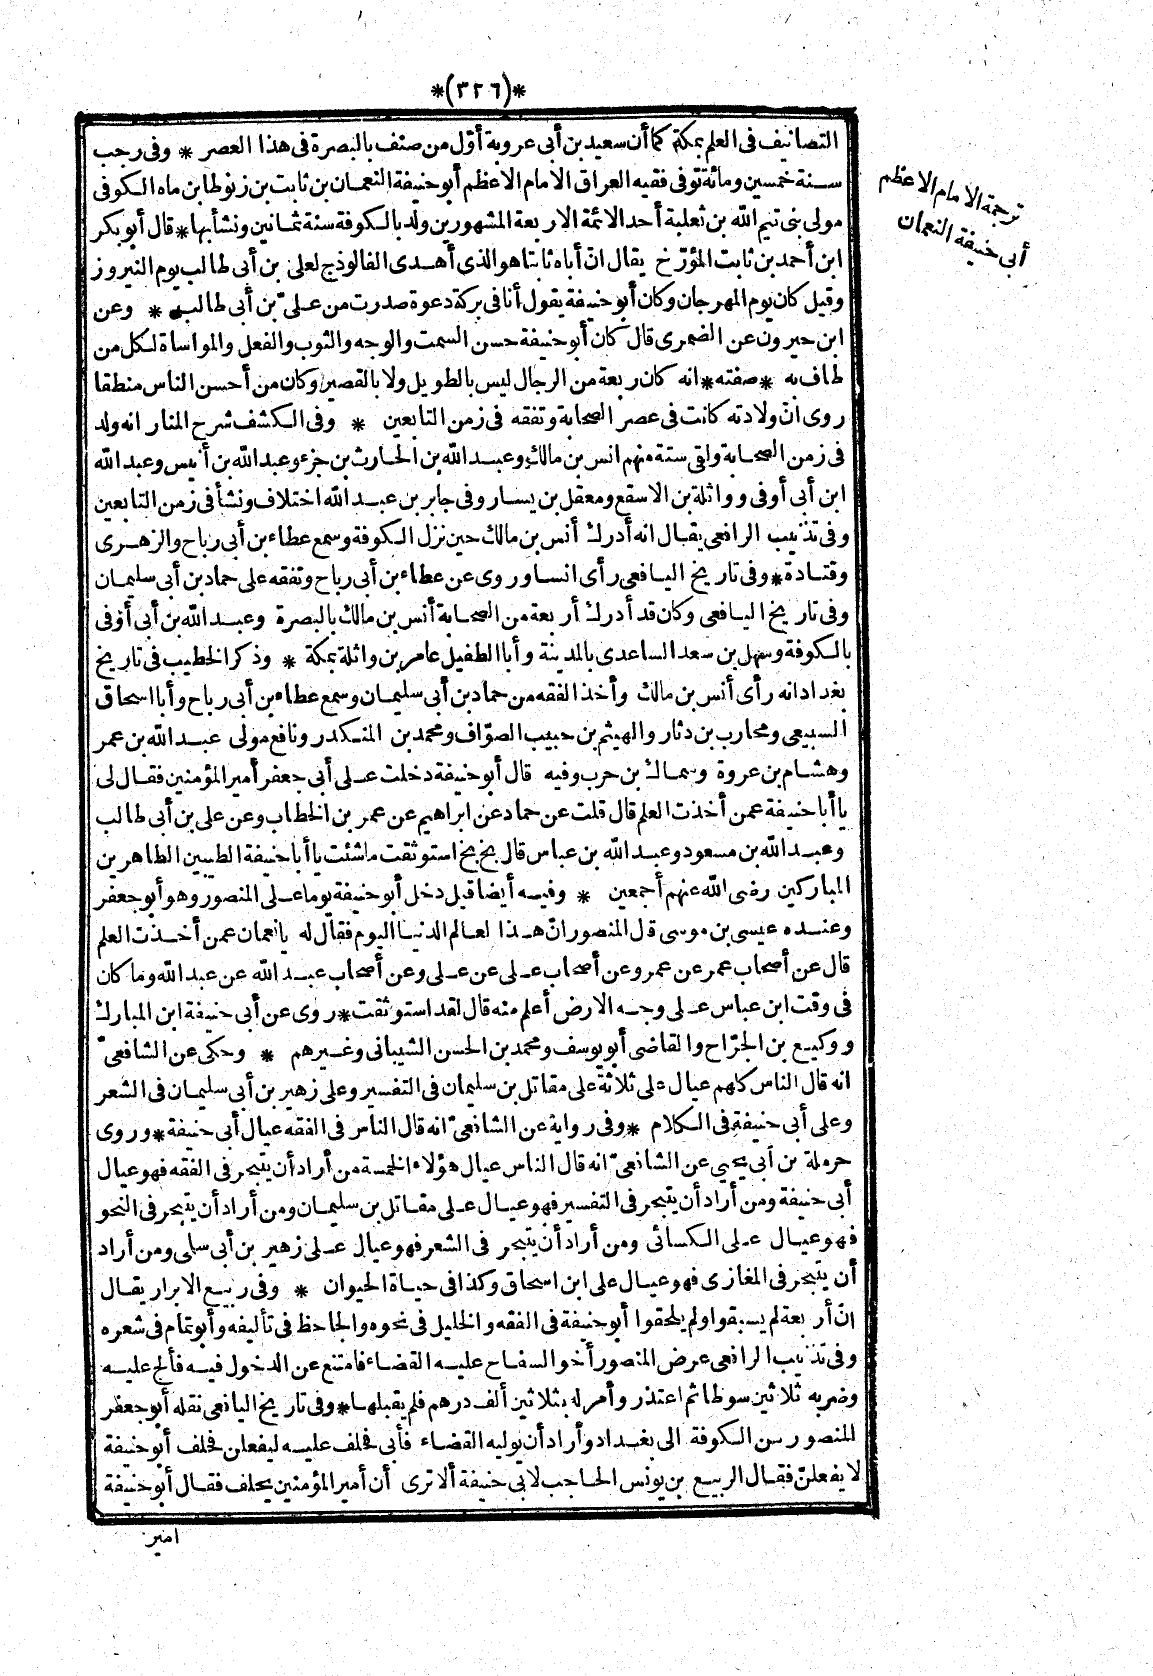 *(٣٢٦)*
التصانيف فى العلم بمكة كما أن سعيد بن أبى عروبة أوّل من صنف بالبصرة فى هذا العصر * وفى رجب
سنة خمسين ومائة توفى فقيه العراق الامام الاعظم أبو حنيفة النعمان بن ثابت بن زنوطا بن ماه الكوفى
مولى بنى تيم الله بن ثعلبة أحد الائمة الاربعة المشهورين ولد بالكوفة سنة ثمانين ونشأ بها * قال أبو بكر
ابن أحمد بن ثابت المؤرّخ يقال انّ أباه ثابتا هو الذى أهدى الفالوذج لعلىّ بن أبى طالب يوم النيروز
وقيل كان يوم المهرجان وكان أبو حنيفة يقول أنا فى بركة دعوة صدرت من علىّ بن أبى طالب * وعن
ابن حيرون عن الضمرى قال كان أبو حنيفة حسن السمت والوجه والثوب والفعل والمواساة لكل من
طاف به * صفته * انه كان ربعة من الرجال ليس بالطويل ولا بالقصير وكان من أحسن الناس منطقا
روى انّ ولادته كانت فى عصر الصحابة وتفقه فى زمن التابعين * وفى الكشف شرح المنار انه ولد
فى زمن الصحابة ولقى ستة منهم انس بن مالك وعبد الله بن الحارث بن جزء وعبد الله بن أنيس وعبد الله
ابن أبى أوفى وواثلة بن الاسقع ومعقل بن يسار وفى جابر بن عبد الله اختلاف ونشأ فى زمن التابعين
وفى تذنيب الرافعى يقال انه أدرك أنس بن مالك حين نزل الكوفة وسمع عطاء بن أبى رباح والزهرى
وقتادة * وفى تاريخ اليافعى رأى انسا وروى عن عطاء بن أبى رباح وتفقه على حماد بن أبى سليمان
وفى تاريخ اليافعى وكان قد أدرك أربعة من الصحابة أنس بن مالك بالبصرة وعبد الله بن أبى أوفى
بالكوفة وسهل بن سعد الساعدى بالمدينة وأبا الطفيل عامر بن واثلة بمكة * وذكر الخطيب فى تاريخ
بغداد انه رأى أنس بن مالك وأخذ الفقه من حماد بن أبى سليمان وسمع عطاء بن أبى رباح وأبا اسحاق
السبيعى ومحارب بن دثار والهيثم بن حبيب الصوّاف ومحمد بن المنكدر ونافع مولى عبد الله بن عمر
وهشام بن عروة وسماك بن حرب وفيه قال أبو حنيفة دخلت على أبى جعفر أمير المؤمنين فقال لى
يا أبا حنيفة عمن أخذت العلم قال قلت عن حماد عن ابراهيم عن عمر بن الخطاب وعن على بن أبى طالب
وعبد الله بن مسعود وعبد الله بن عباس قال بخ بخ استوثقت ما شئت يا أبا حنيفة الطيبين الطاهرين
المباركين رضى الله عنهم أجمعين * وفيه أيضا قيل دخل أبو حنيفة يوما على المنصور وهو أبو جعفر
وعنده عيسى بن موسى قل المنصور انّ هذا لعالم الدنيا اليوم فقال له يا نعمان عمن أخذت العلم
قال عن أصحاب عمر عن عمر وعن أصحاب على عن على وعن أصحاب عبد الله عن عبد الله وما كان
فى وقت ابن عباس على وجه الارض أعلم منه قال لقد استوثقت * روى عن أبى حنيفة ابن المبارك
ووكيع بن الجرّاح والقاضى أبو يوسف ومحمد بن الحسن الشيبانى وغيرهم * وحكى عن الشافعىّ
انه قال الناس كلهم عيال على ثلاثة على مقاتل بن سليمان فى التفسير وعلى زهير بن أبى سليمان فى الشعر
وعلى أبى حنيفة فى الكلام * وفى رواية عن الشافعىّ انه قال الناس فى الفقه عيال أبى حنيفة * وروى
حرملة بن أبى يحيى عن الشافعىّ انه قال الناس عيال هؤلاء الخمسة من أراد أن يتبحر فى الفقه فهو عيال
أبى حنيفة ومن أراد أن يتبحر فى التفسير فهو عيال على مقاتل بن سليمان ومن أراد أن يتبحر فى النحو
فهو عيال على الكسائى ومن أراد أن يتبحر فى الشعر فهو عيال على زهير بن أبى سلمى ومن أراد
أن يتبحر فى المغازى فهو عيال على ابن اسحاق وكذا فى حياة الحيوان * وفى ربيع الابرار يقال
انّ أربعة لم يسبقوا ولم يلحقوا أبو حنيفة فى الفقه والخليل فى نحوه والجاحظ فى تأليفه وأبو تمام فى شعره
وفى تذنيب الرافعى عرض المنصور أخو السفاح عليه القضاء فامتنع عن الدخول فيه فألح عليه
وضربه ثلاثين سوطا ثم اعتذر وأمر له بثلاثين ألف درهم فلم يقبلها * وفى تاريخ اليافعى نقله أبو جعفر
المنصور من الكوفة الى بغداد وأراد أن يوليه القضاء فأبى فحلف عليه ليفعلن فحلف أبو حنيفة
لا يفعلنّ فقال الربيع بن يونس الحاجب لابى حنيفة ألا ترى أن أمير المؤمنين يحلف فقال أبو حنيفة
امير
ترجمة الامام الاعظم
أبى حنيفة النعمان